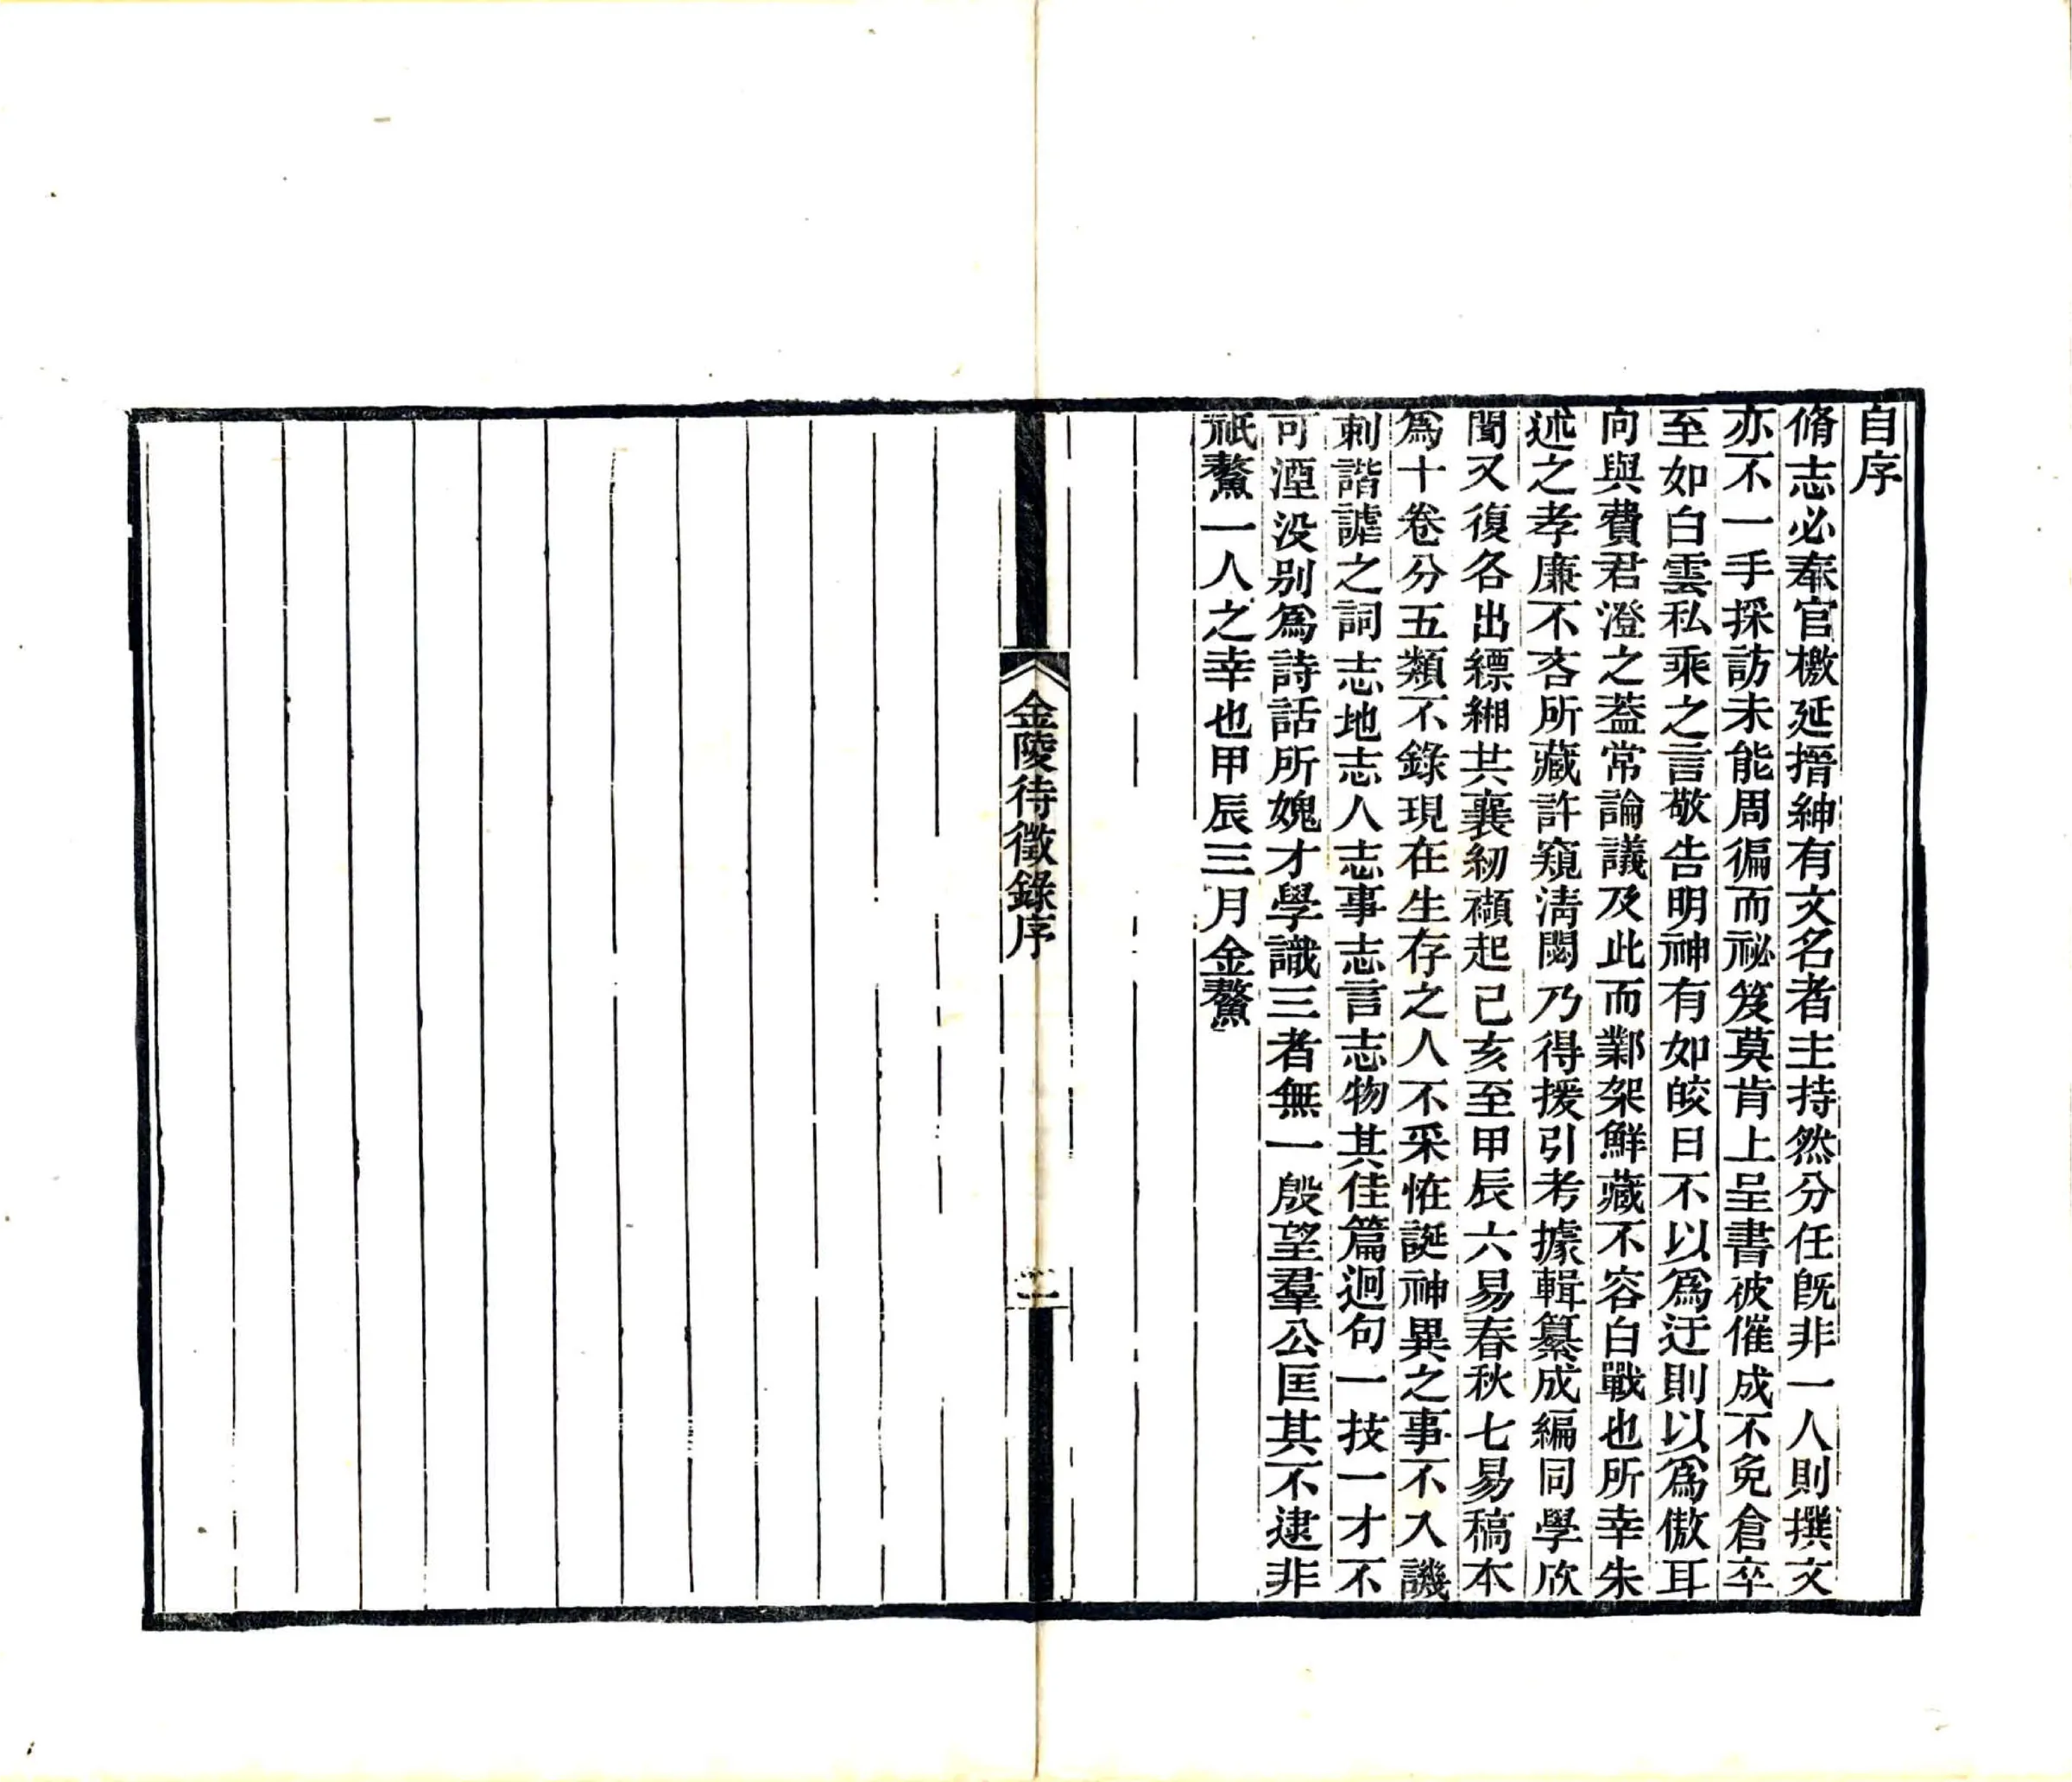 自序
脩志必奉官檄延搢紳有文名者主持然分任旣非一人則撰文
亦不一手採訪未能周徧而祕笈莫肯上呈書被催成不免倉卒
至如白雲私乘之言敬告明神有如皎日不以爲迂則以爲傲耳
向與費君澄之葢常論議及此而鄴架鮮藏不容白戰也所幸朱
述之孝廉不吝所藏許窺淸閟乃得援引考據輯纂成編同學欣
聞又復各出縹緗共襄紉襭起己亥至甲辰六易春秋七易稿本
爲十卷分五類不錄現在生存之人不采恠誕神異之事不入譏
刺諧謔之詞志地志人志事志言志物其佳篇迥句一技一才不
可湮没别爲詩話所媿才學識三者無一殷望羣公匡其不逮非
祇鰲一人之幸也甲辰三月金鰲
金陵待徵錄序